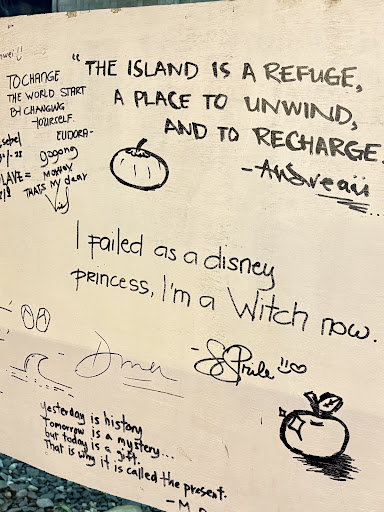 TO CHANGE
THE WORLD START
BY CHANGING
YOURSELF.
EUDORA-
gagong
THATS MY dear
"THE ISLAND IS A REFUGE,
A PLACE TO UNWIND,
AND TO RECHARGE.
I failed as a disney
princess, I'm a Witch now.
yesterday is history
Tomorrow is a mystery...
but today is a gift.
That is why it is called the present.